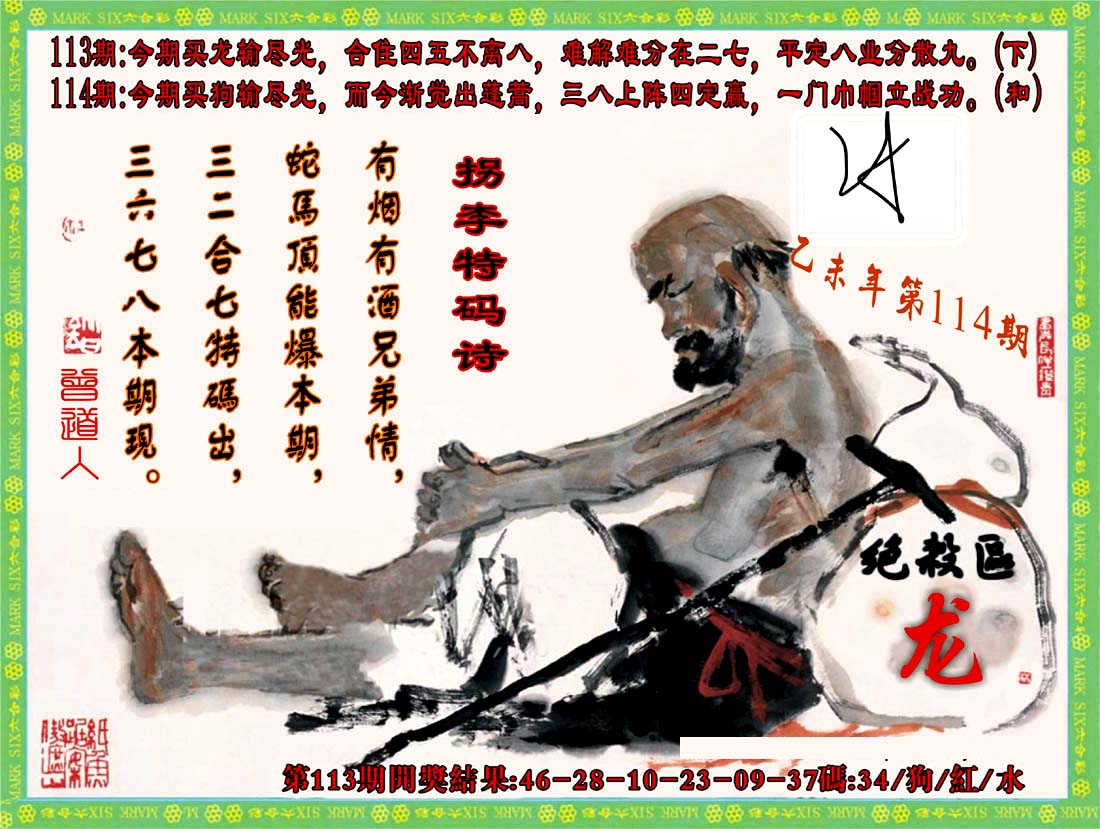 MARK SIX六合彩
113期:今期买龙输尽光，合住四五不离八，难解难分在二七，平定八业分散九。(下)
114期:今期买狗输尽光，而今渐觉出蓬蒿，三八上阵四定赢，一门巾帼立战功。(和)
拐李特码诗
有烟有酒兄弟情，
蛇馬頂能爆本期，
三二合七特碼出，
三六七八本期現。
曾道人
乙未年第114期
绝殺區
龙
第113期開獎結果:46-28-10-23-09-37碼:34/狗/紅/水